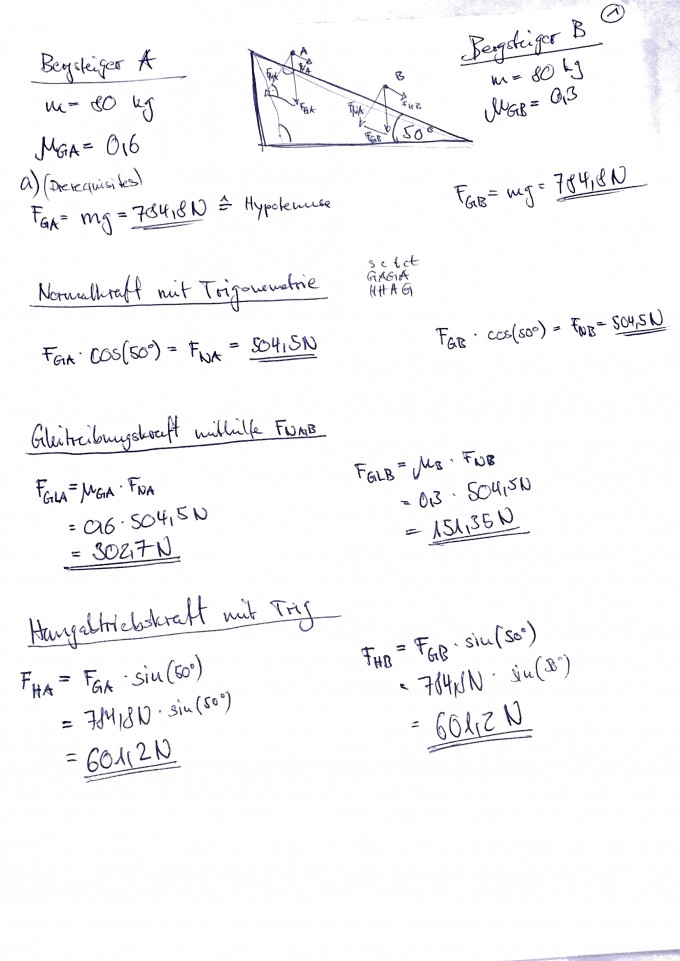 1
Bergsteiger A
m = 80 kg
μGA = 0,6
A
FNA
FHA
FGA
B
FNB
FHB
FGB
50°
Bergsteiger B
m = 80 kg
μGB = 0,3
a) (Prerequisites)
FGA = mg = 784,8N ≙ Hypotenuse
FGB = mg = 784,8N
Normalkraft mit Trigonometrie
s c t ct
GAGA
HHAG
FGA · cos(50°) = FNA = 504,5N
FGB · cos(50°) = FNB = 504,5N
Gleitreibungskraft mithilfe FNA,B
FGLA = μGA · FNA
= 0,6 · 504,5N
= 302,7N
FGLB = μB · FNB
= 0,3 · 504,5N
= 151,35N
Hangabtriebskraft mit Trig
FHA = FGA · sin(50°)
= 784,8N · sin(50°)
= 601,2N
FHB = FGB · sin(50°)
= 784,8N · sin(50°)
= 601,2N